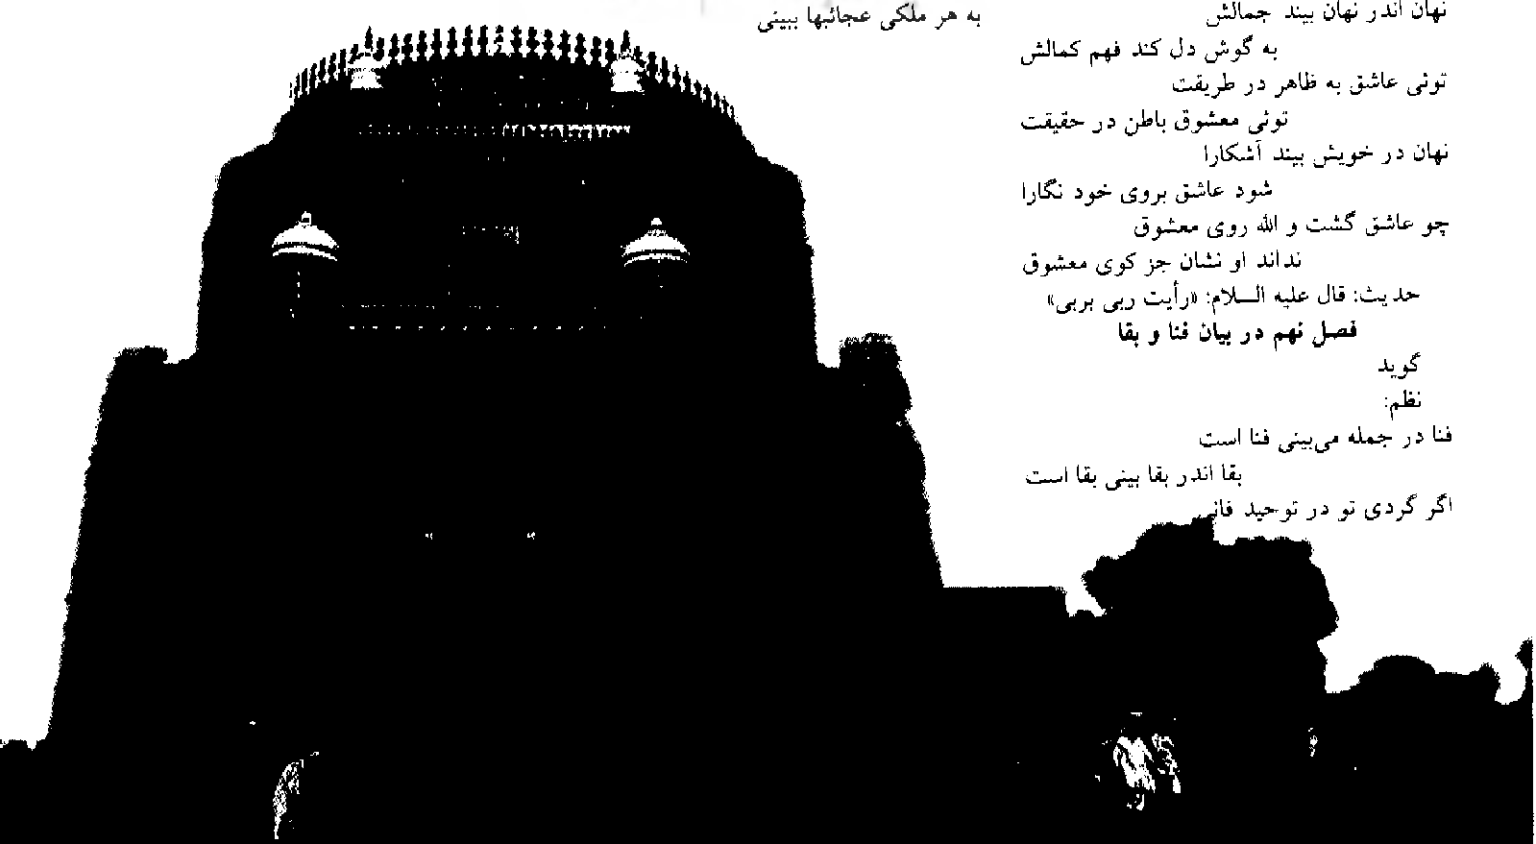 نهان اندر نهان بیند جمالش
به گوش دل کند فهم کمالش
توئی عاشق به ظاهر در طریقت
توئی معشوق باطن در حقیقت
نهان در خویش بیند آشکارا
شود عاشق بروی خود نگارا
چو عاشق گشت و الله روی معشوق
نداند او نشان جز کوی معشوق
حدیث: قال علیه السلام: «رأیت ربی بربی»
فصل نهم در بیان فنا و بقا
گوید
نظم:
فنا در جمله می‌بینی فنا است
بقا اندر بقا بینی بقا است
اگر گردی تو در توحید فانی
به هر ملکی عجائبها ببینی